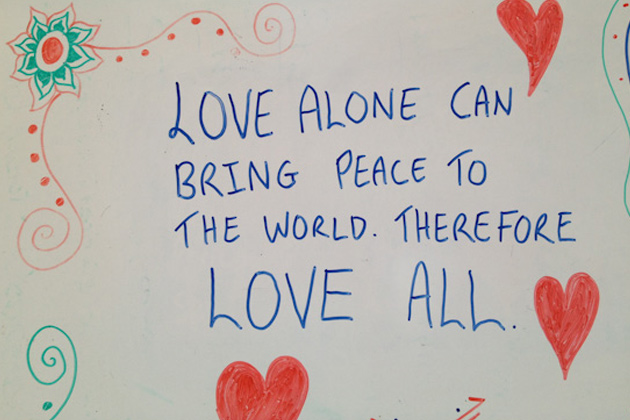 LOVE ALONE CAN
BRING PEACE TO
THE WORLD. THEREFORE
LOVE ALL.